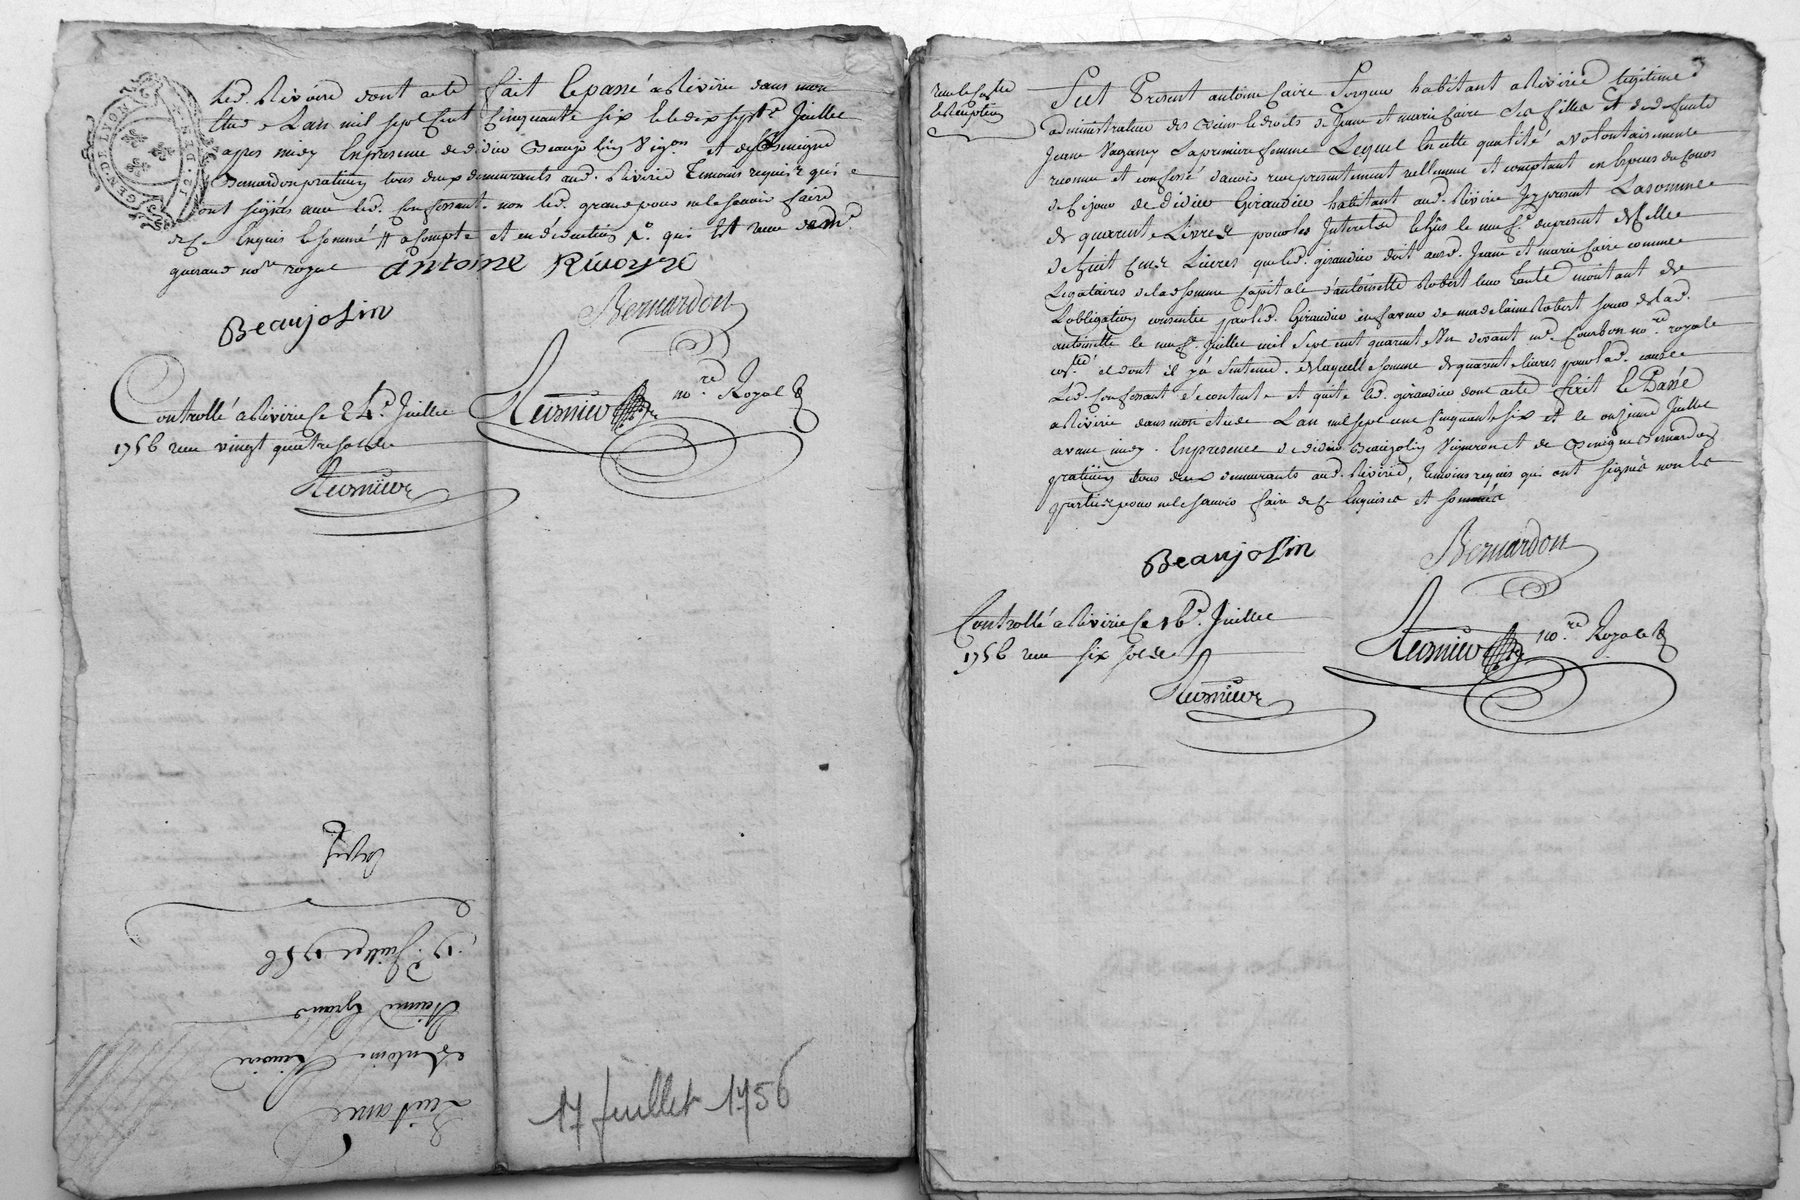 Led. Rivoire dont acte fait et passé a Riviriè dans mon
Etude L'an mil sept cent cinquante six et le dix sept.e Juillet
apres midy En presence de didier Beaujolin Vig.on et de Benigne
Bernardon praticien tous deux demeurants aud. Riviriè Temoins requis qui
ont signés avec led. Confessant non led. grand pour ne le scavoir faire
de ce Enquis et sommé a Compte et en deduction
no.re royal antoine Rivoyre
Beaujolin
Bernardon
Controllé a Riviriè ce 24.e Juillet
1756 recu vingt quatre sols
no.re Royal
GEN. DE LYON
layé
17.e Juillet 1756
Etienne Grand
Antoine Rivoire
Quittance
17 juillet 1756
Fut Present antoine faire habitant a Riviriè legitime
administrateur des biens et droits de Jeanne et marie faire ses filles et de defunte
Jeanne Vaganay sa premiere femme Lequel En cette qualité a volontairement
reconnu et confessé d'avoir reçu presentement reellement et comptant en Especes du Cours
de ce jour de didier Giraudier habitant aud. Riviriè Icy present La somme
de quarante Livres pour les Interets Echus le neuf.e du present de celle
de huit Cent Livres que led. giraudier doit auxd. Jeanne et marie faire comme
Legataires de lad. somme Capitale d'antoinette Robert leur Tante montant de
L'obligation consentie par led. Giraudier en faveur de madelaine Robert soeur de lad.
antoinette le neuf.e Juillet mil sept cent quarante Un devant m.e Courbon no.re royal
et dont il s'y a sentence. de laquelle somme de quarante livres pour lad. cause
Led. Confessant s'est contenté et quitte led. giraudier dont acte fait et Passé
a Riviriè dans mon etude L'an mil sept cent Cinquante six et le onzieme Juillet
avant midy. En presence de didier Beaujolin Vigneron et de Benigne Bernardon
praticien tous deux demeurants aud. Riviriè, temoins requis qui ont signés non les
parties pour ne le scavoir faire de ce Enquises et sommées
Beaujolin
Bernardon
Controllé a Riviriè Ce 16.e Juillet
1756 recu six sols
no.re Royal